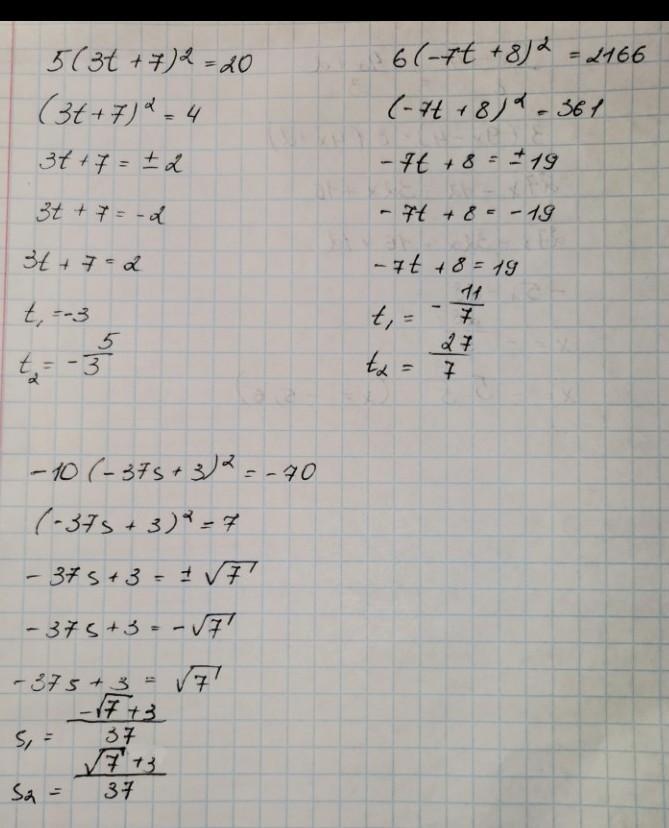 5(3t + 7)² = 20
(3t + 7)² = 4
3t + 7 = ± 2
3t + 7 = -2
3t + 7 = 2
t₁ = -3
t₂ = - 5/3
6(-7t + 8)² = 2166
(-7t + 8)² = 361
-7t + 8 = ± 19
-7t + 8 = -19
-7t + 8 = 19
t₁ = - 11/7
t₂ = 27/7
-10(-37s + 3)² = -70
(-37s + 3)² = 7
-37s + 3 = ± √7
-37s + 3 = -√7
-37s + 3 = √7
s₁ = (-√7 + 3)/37
s₂ = (√7 + 3)/37